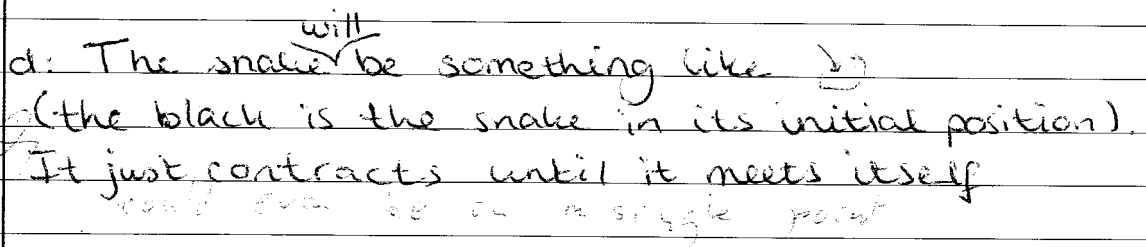 d: The snake will be something like
(the black is the snake in its initial position).
It just contracts until it meets itself
could even be in a single point